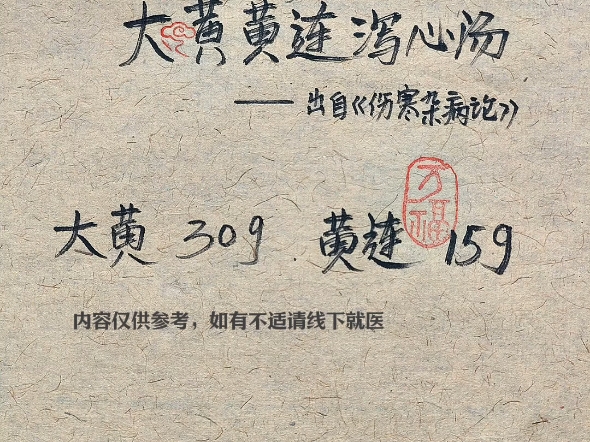 大黄黄莲泻心汤
——出自《伤寒杂病论》
大黄 30g 黄莲 15g
万福
内容仅供参考，如有不适请线下就医